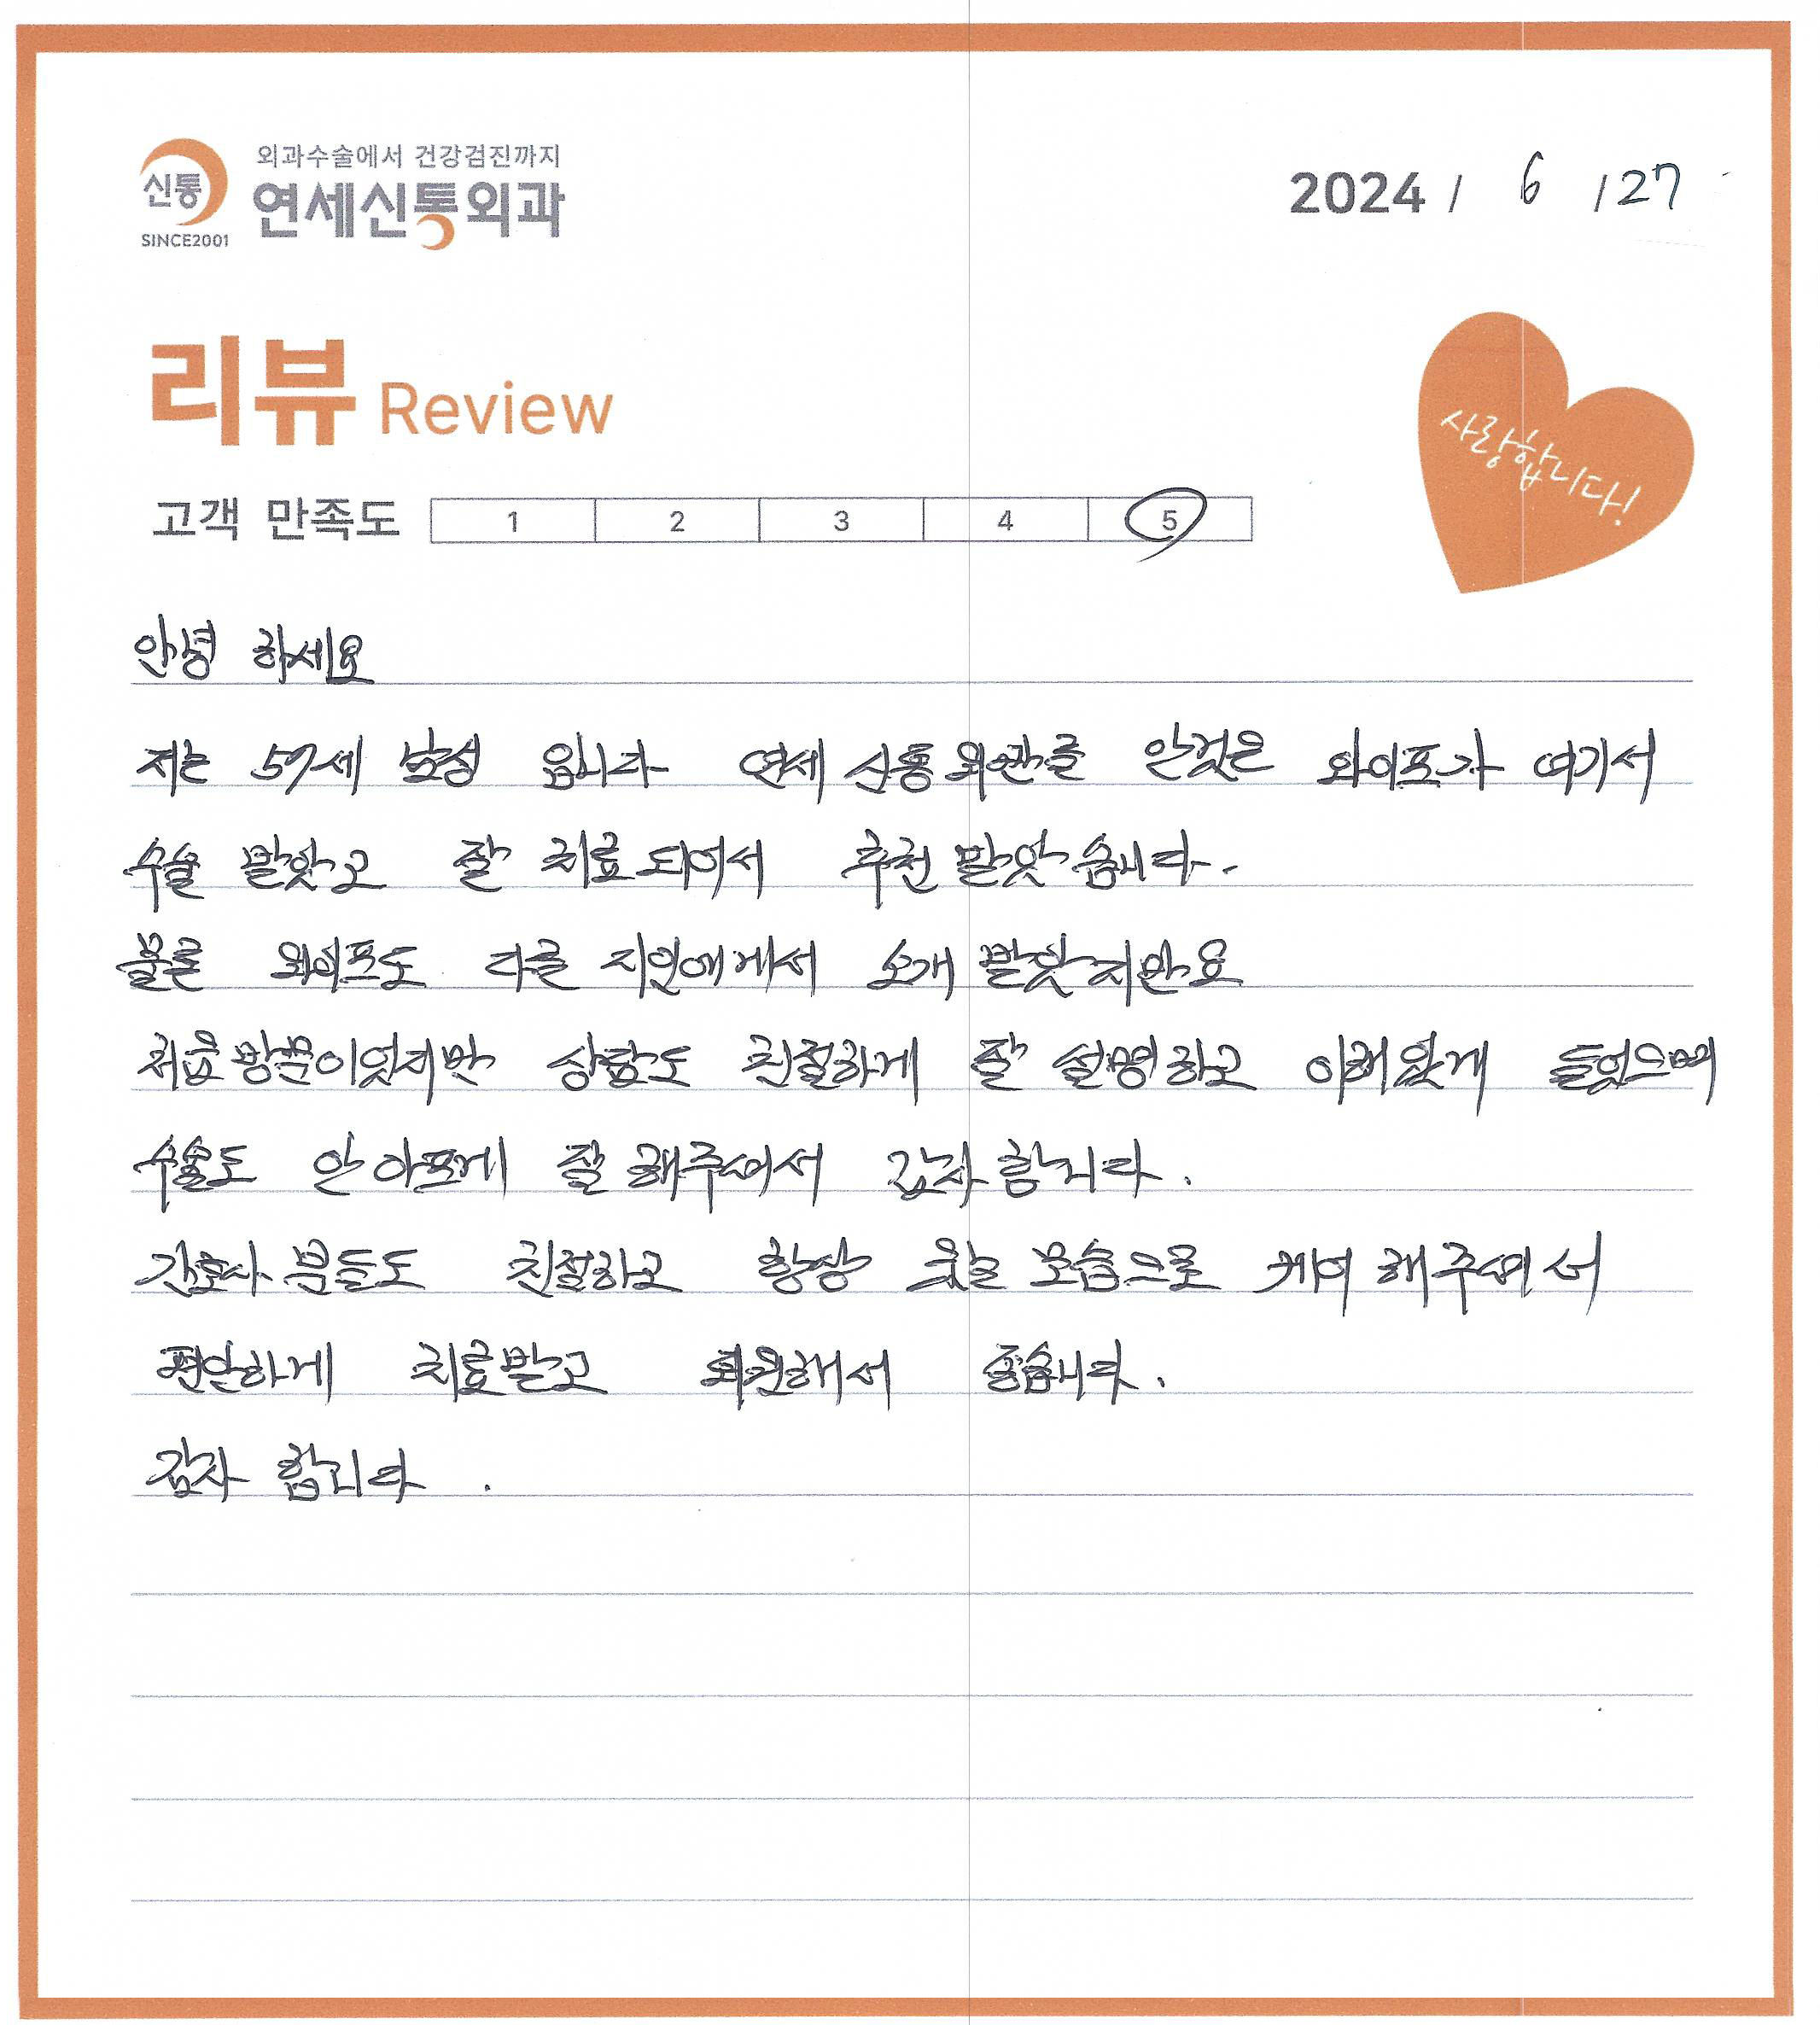 신통
SINCE2001
외과수술에서 건강검진까지
연세신통외과
2024 / 6 / 27
리뷰 Review
사랑합니다!
고객 만족도 1 2 3 4 5
안녕 하세요
저는 57세 남성 입니다 연세 신통 외관를 안것은 와이프가 여기서
수술 받았고 잘 치료되어서 추천 받았습니다.
물론 와이프도 다른 지인에게서 소개 받았지만요
처음방문이였지만 상담도 친절하게 잘 설명하고 이해있게 들었으며
수술도 안아프게 잘 해주셔서 감사 합니다.
간호사 분들도 친절하고 항상 웃는 모습으로 케어 해주셔서
편안하게 치료받고 퇴원해서 좋습니다.
감사 합니다.